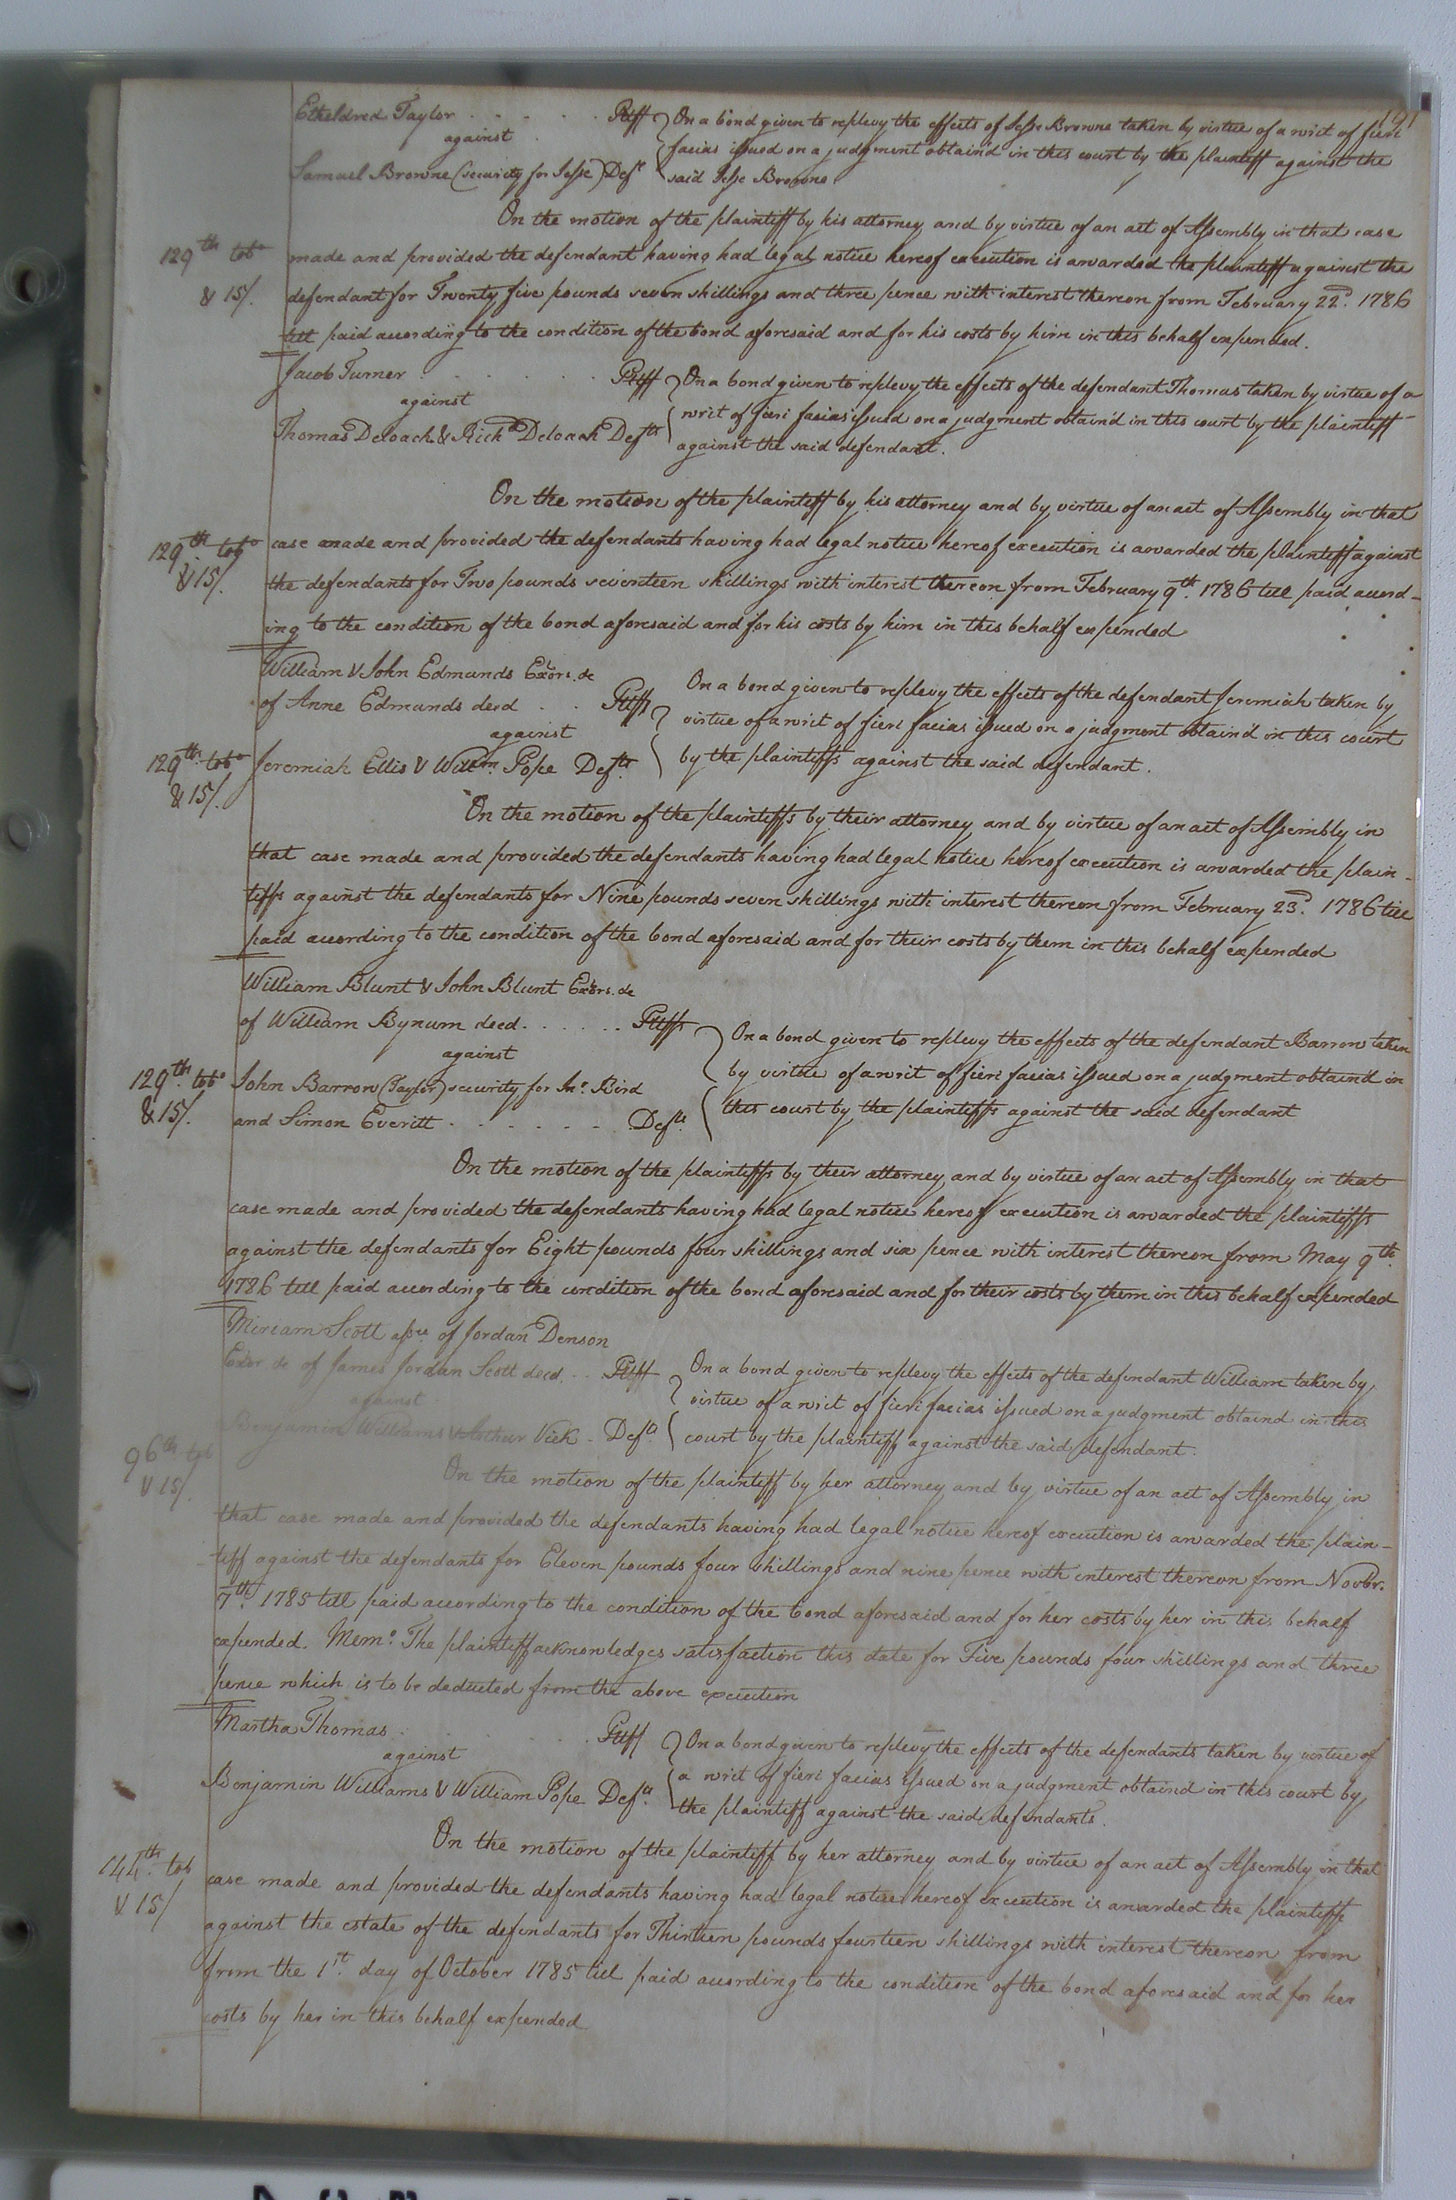 191
Etheldred Taylor . . . . . Pltff
against
Samuel Browne (security for Jesse) Deft
On a bond given to replevy the effects of Jesse Browne taken by virtue of a writ of fieri
facias issued on a judgment obtaind in this court by the plaintiff against the
said Jesse Browne.
On the motion of the plaintiff by his attorney and by virtue of an act of Assembly in that case
129th tobo
& 15/.
made and provided the defendant having had legal notice hereof execution is awarded the plaintiff against the
defendant for Twenty five pounds seven shillings and three pence with interest thereon from February 22d. 1786
till paid according to the condition of the bond aforesaid and for his costs by him in this behalf expended.
Jacob Turner . . . . . . Pltff
against
Thomas Deloach & Richd Deloach Defts
On a bond given to replevy the effects of the defendant Thomas taken by virtue of a
writ of fieri facias issued on a judgment obtain'd in this court by the plaintiff
against the said defendant.
On the motion of the plaintiff by his attorney and by virtue of an act of Assembly in that
129th. tobo
& 15/.
case made and provided the defendants having had legal notice hereof execution is awarded the plaintiff against
the defendants for Two pounds seventeen shillings with interest thereon from February 9th. 1786 till paid accord-
ing to the condition of the bond aforesaid and for his costs by him in this behalf expended
William & John Edmunds Exors. &c
of Anne Edmunds decd . . Pltffs
against
129th. tobo
& 15/.
Jeremiah Ellis & Willm. Pope Defts.
On a bond given to replevy the effects of the defendant Jeremiah taken by
virtue of a writ of fieri facias issued on a judgment obtain'd in this court
by the plaintiffs against the said defendant.
On the motion of the plaintiffs by their attorney and by virtue of an act of Assembly in
that case made and provided the defendants having had legal notice hereof execution is awarded the plain-
tiffs against the defendants for Nine pounds seven shillings with interest thereon from February 23d. 1786 till
paid according to the condition of the bond aforesaid and for their costs by them in this behalf expended
William Blunt & John Blunt Exors. &c
of William Bynum decd. . . . . . Pltffs
against
129th. tobo
& 15/.
John Barron (Taylor) security for Jno. Bird
and Simon Everitt . . . . . . . Defts.
On a bond given to replevy the effects of the defendant Barron taken
by virtue of a writ of fieri facias issued on a judgment obtain'd in
this court by the plaintiffs against the said defendant
On the motion of the plaintiffs by their attorney and by virtue of an act of Assembly in that
case made and provided the defendants having had legal notice hereof execution is awarded the plaintiffs
against the defendants for Eight pounds four shillings and six pence with interest thereon from May 9th.
1786 till paid according to the condition of the bond aforesaid and for their costs by them in this behalf expended
Miriam Scott assee of Jordan Denson
Exor &c of James Jordan Scott decd. . . Pltff
against
Benjamin Williams & Arthur Vick . Defts.
On a bond given to replevy the effects of the defendant William taken by
virtue of a writ of fieri facias issued on a judgment obtaind in this
court by the plaintiff against the said defendant.
96th tob
& 15/.
On the motion of the plaintiff by her attorney and by virtue of an act of Assembly in
that case made and provided the defendants having had legal notice hereof execution is awarded the plain-
tiff against the defendants for Eleven pounds four shillings and nine pence with interest thereon from Novbr.
7th. 1785 till paid according to the condition of the bond aforesaid and for her costs by her in this behalf
expended. Memo. The plaintiff acknowledges satisfaction this date for Five pounds four shillings and three
pence which is to be deducted from the above execution
Martha Thomas . . . . Pltff
against
Benjamin Williams & William Pope Defts.
On a bond given to replevy the effects of the defendants taken by virtue of
a writ of fieri facias issued on a judgment obtaind in this court by
the plaintiff against the said defendants.
On the motion of the plaintiff by her attorney and by virtue of an act of Assembly in that
144th. tob
& 15/
case made and provided the defendants having had legal notice hereof execution is awarded the plaintiff
against the estate of the defendants for Thirteen pounds fourteen shillings with interest thereon from
from the 1st. day of October 1785 till paid according to the condition of the bond aforesaid and for her
costs by her in this behalf expended